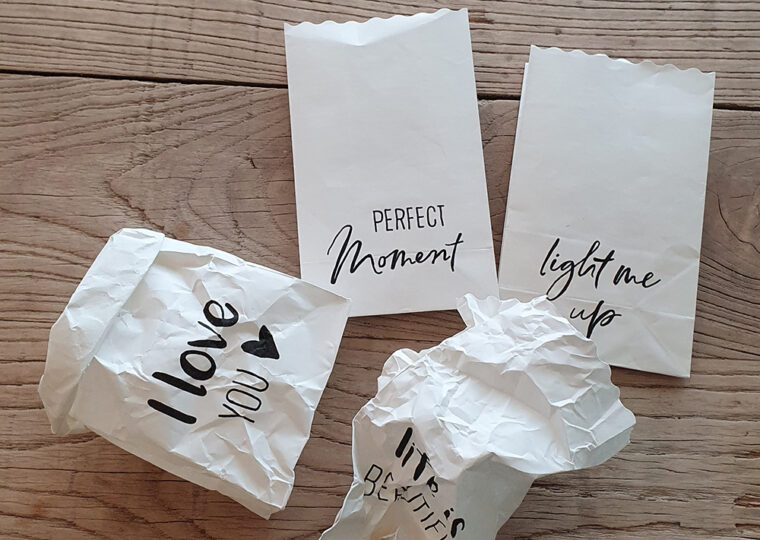 PERFECT
Moment
light me
up
I love
YOU
life is
BEAUTIFUL